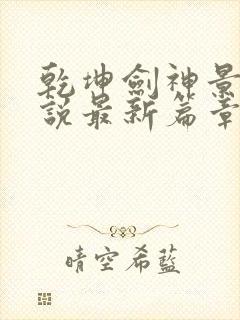 乾坤劍神景
說最新篇章
晴空希藍